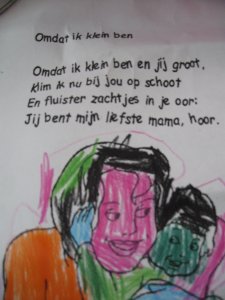 Omdat ik klein ben
Omdat ik klein ben en jij groot,
Klim ik nu bij jou op schoot
En fluister zachtjes in je oor:
Jij bent mijn liefste mama, hoor.